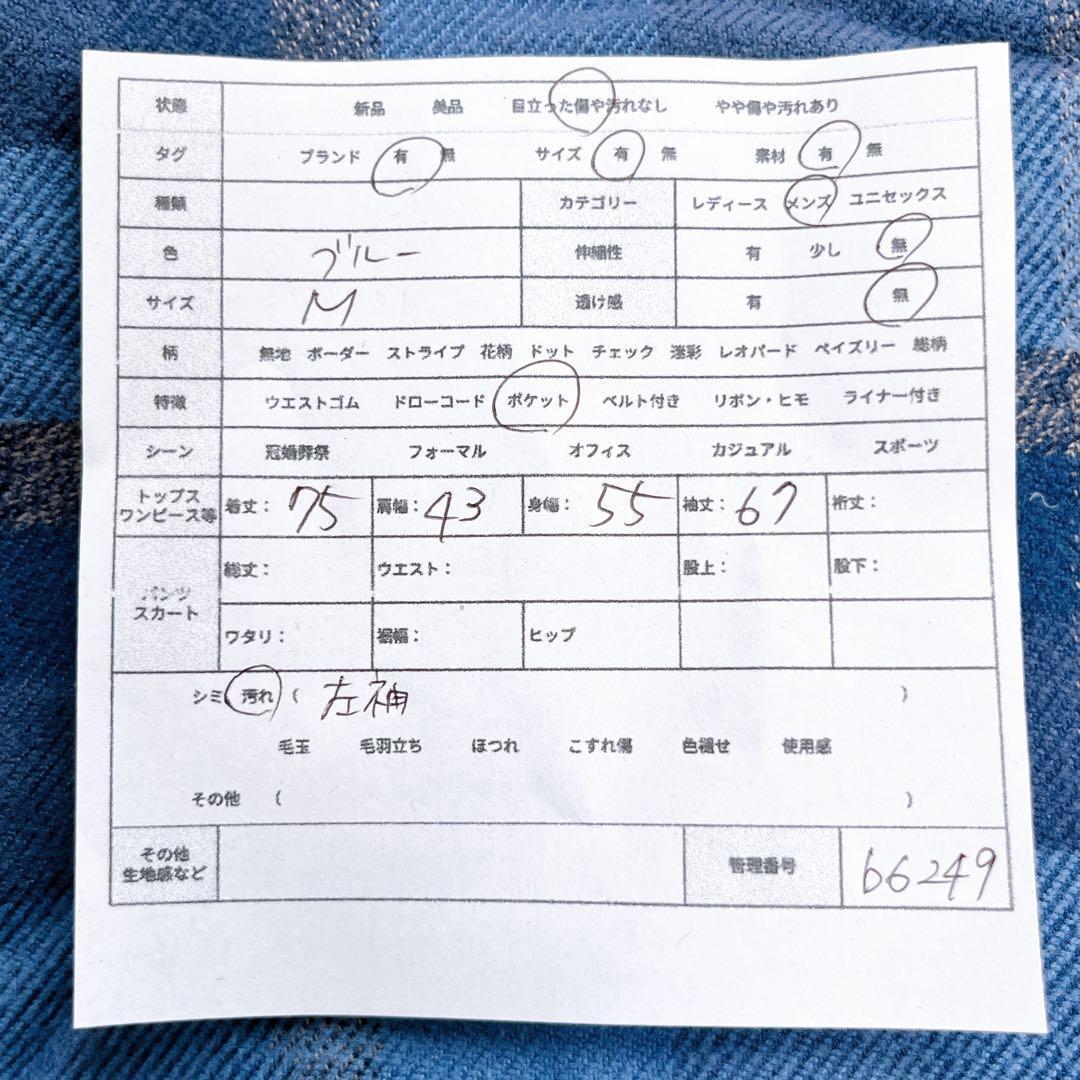 状態 新品 美品 目立った傷や汚れなし やや傷や汚れあり
タグ ブランド 有 無 サイズ 有 無 素材 有 無
種類 カテゴリー レディース メンズ ユニセックス
色 ブルー 伸縮性 有 少し 無
サイズ M 透け感 有 無
柄 無地 ボーダー ストライプ 花柄 ドット チェック 迷彩 レオパード ペイズリー 総柄
特徴 ウエストゴム ドローコード ポケット ベルト付き リボン・ヒモ ライナー付き
シーン 冠婚葬祭 フォーマル オフィス カジュアル スポーツ
トップス
ワンピース等 着丈: 75 肩幅: 43 身幅: 55 袖丈: 67 裄丈:
パンツ
スカート
総丈: ウエスト: 股上: 股下:
ワタリ: 裾幅: ヒップ
シミ、汚れ ( 左袖 )
毛玉 毛羽立ち ほつれ こすれ傷 色褪せ 使用感
その他 ( )
その他
生地感など
管理番号 66249